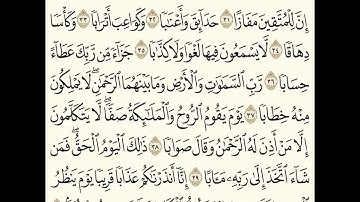 إِنَّ لِلْمُتَّقِينَ مَفَازًا ٣١ حَدَائِقَ وَأَعْنَابًا ٣٢ وَكَوَاعِبَ أَتْرَابًا ٣٣ وَكَأْسًا
دِهَاقًا ٣٤ لَّا يَسْمَعُونَ فِيهَا لَغْوًا وَلَا كِذَّابًا ٣٥ جَزَاءً مِّن رَّبِّكَ عَطَاءً
حِسَابًا ٣٦ رَّبِّ السَّمَٰوَٰتِ وَالْأَرْضِ وَمَا بَيْنَهُمَا الرَّحْمَٰنِ ۖ لَا يَمْلِكُونَ
مِنْهُ خِطَابًا ٣٧ يَوْمَ يَقُومُ الرُّوحُ وَالْمَلَٰئِكَةُ صَفًّا ۖ لَّا يَتَكَلَّمُونَ
إِلَّا مَنْ أَذِنَ لَهُ الرَّحْمَٰنُ وَقَالَ صَوَابًا ٣٨ ذَٰلِكَ الْيَوْمُ الْحَقُّ ۖ فَمَن
شَاءَ اتَّخَذَ إِلَىٰ رَبِّهِ مَـَٔابًا ٣٩ إِنَّا أَنذَرْنَٰكُمْ عَذَابًا قَرِيبًا يَوْمَ يَنظُرُ